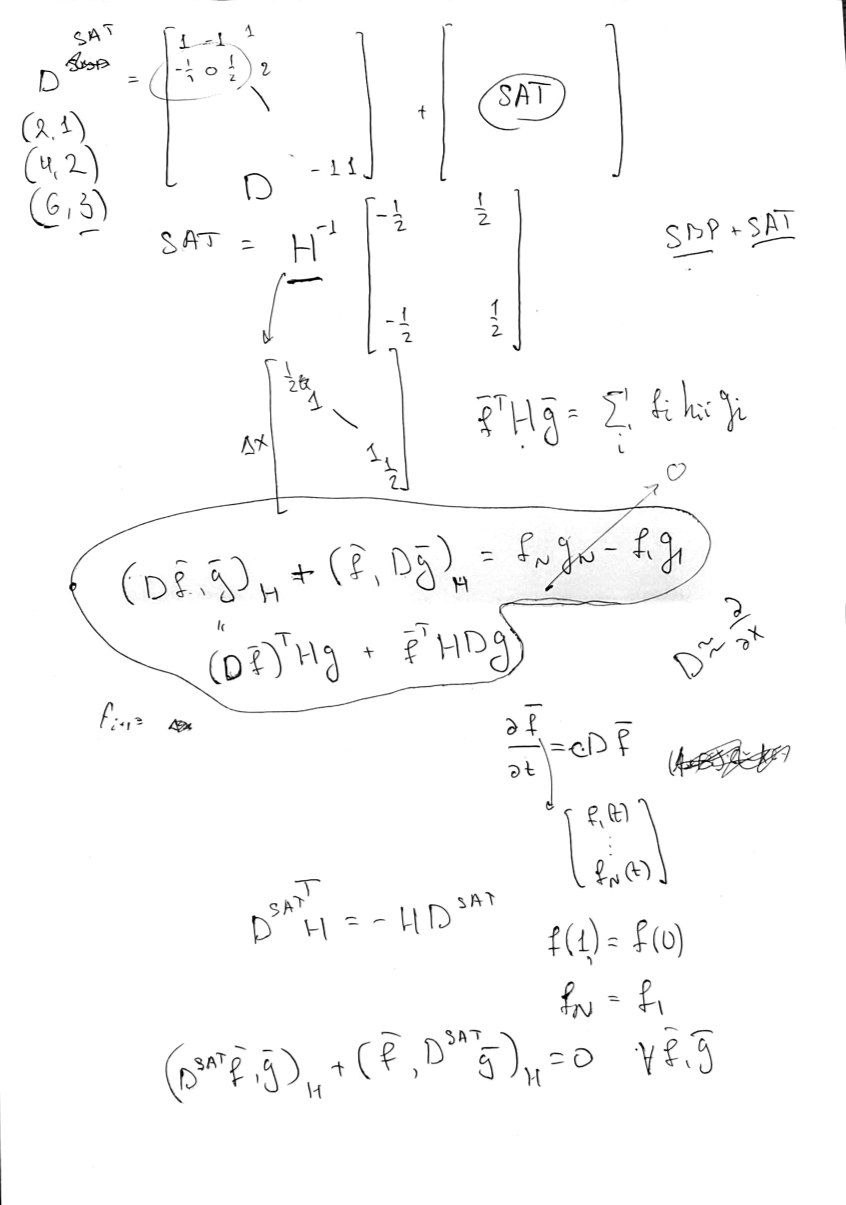 D^SAT = [ 1 -1 1
-1/2 0 1/2 2
\
-1 1 ] + [ SAT ]
D
(2,1)
(4,2)
(6,3)
SAT = H^-1 [ -1/2 1/2
-1/2 1/2 ]
SBP + SAT
Δx [ 1/2
1
\
1
1/2 ]
f̄^T H ḡ = Σ_i f_i h_ii g_i
0
(D f̄, ḡ)_H + (f̄, D ḡ)_H = f_N g_N - f_1 g_1
"
(D f̄)^T H g + f̄^T H D g
D ≈ ∂/∂x
f_i+1 =
∂f̄/∂t = cD f̄
[ f_1(t)
⋮
f_N(t) ]
D^SAT^T H = - H D^SAT
f(1) = f(0)
f_N = f_1
(D^SAT f̄, ḡ)_H + (f̄, D^SAT ḡ)_H = 0 ∀ f̄, ḡ